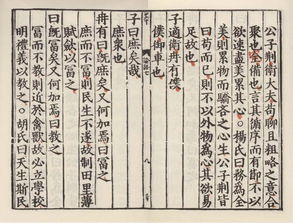 公子荆衛大夫苟聊且粗略之意合
聚也完備也言其循序而有節不以
欲速盡美累其心○楊氏曰務為全
美則累物而驕吝之心生公子荆皆
曰苟而已則不以外物為心其欲易
足故也
子適衛冉有僕
僕御車也
論語七
八
子曰庶矣哉
庶衆也
冉有曰既庶矣又何加焉曰富之
庶而不富則民生不遂故制田里薄
賦斂以富之
曰既富矣又何加焉曰教之
富而不教則近於禽獸故必立學校
明禮義以教之○胡氏曰天生斯民